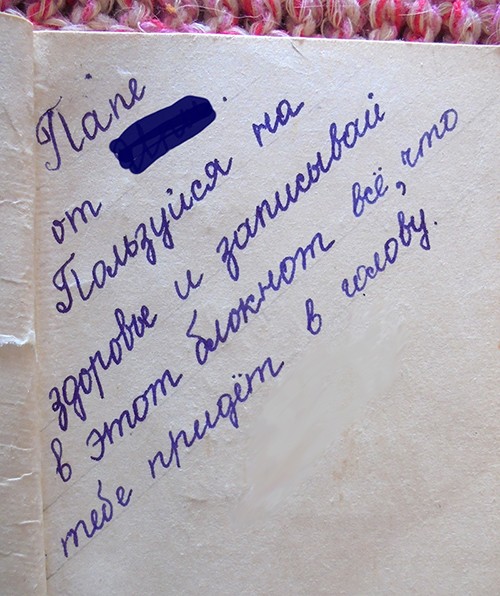 Папе
от .
Пользуйся на
здоровье и записывай
в этот блокнот всё, что
тебе придёт в голову.